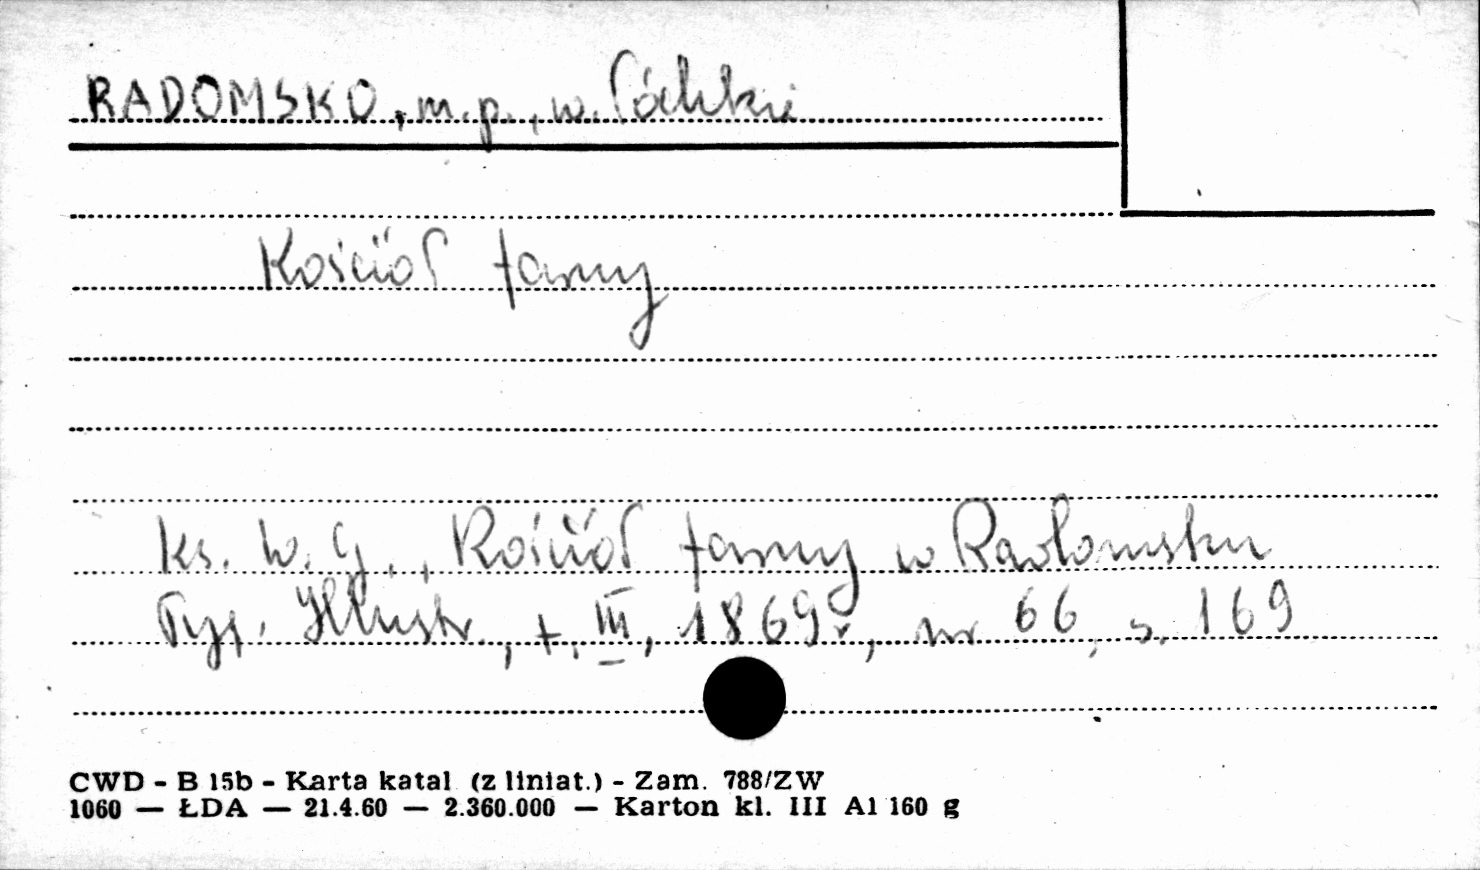 RADOMSKO, m.p., w. Łódzkie
Kościół farny
Ks. W. G., Kościół farny w Radomsku
Tyg. Illustr., t. III, 1869 r, nr 66, s. 169
CWD - B 15b - Karta katal (z liniat.) - Zam. 788/ZW
1060 — ŁDA — 21.4.60 — 2.360.000 — Karton kl. III A1 160 g